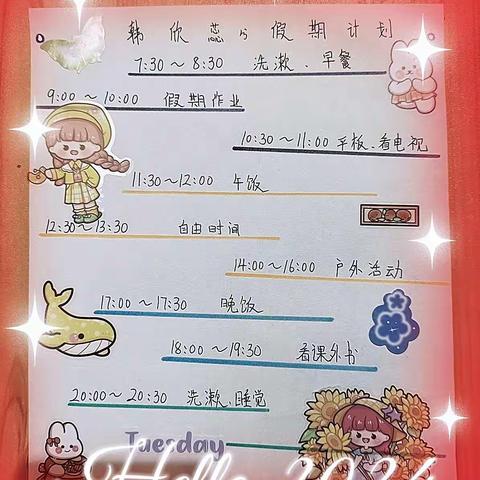 韩欣蕊の假期计划
7:30～8:30 洗漱、早餐
9:00～10:00 假期作业
10:30～11:00 平板、看电视
11:30～12:00 午饭
12:30～13:30 自由时间
14:00～16:00 户外活动
17:00～17:30 晚饭
18:00～19:30 看课外书
20:00～20:30 洗漱、睡觉
Tuesday
Hello 2024